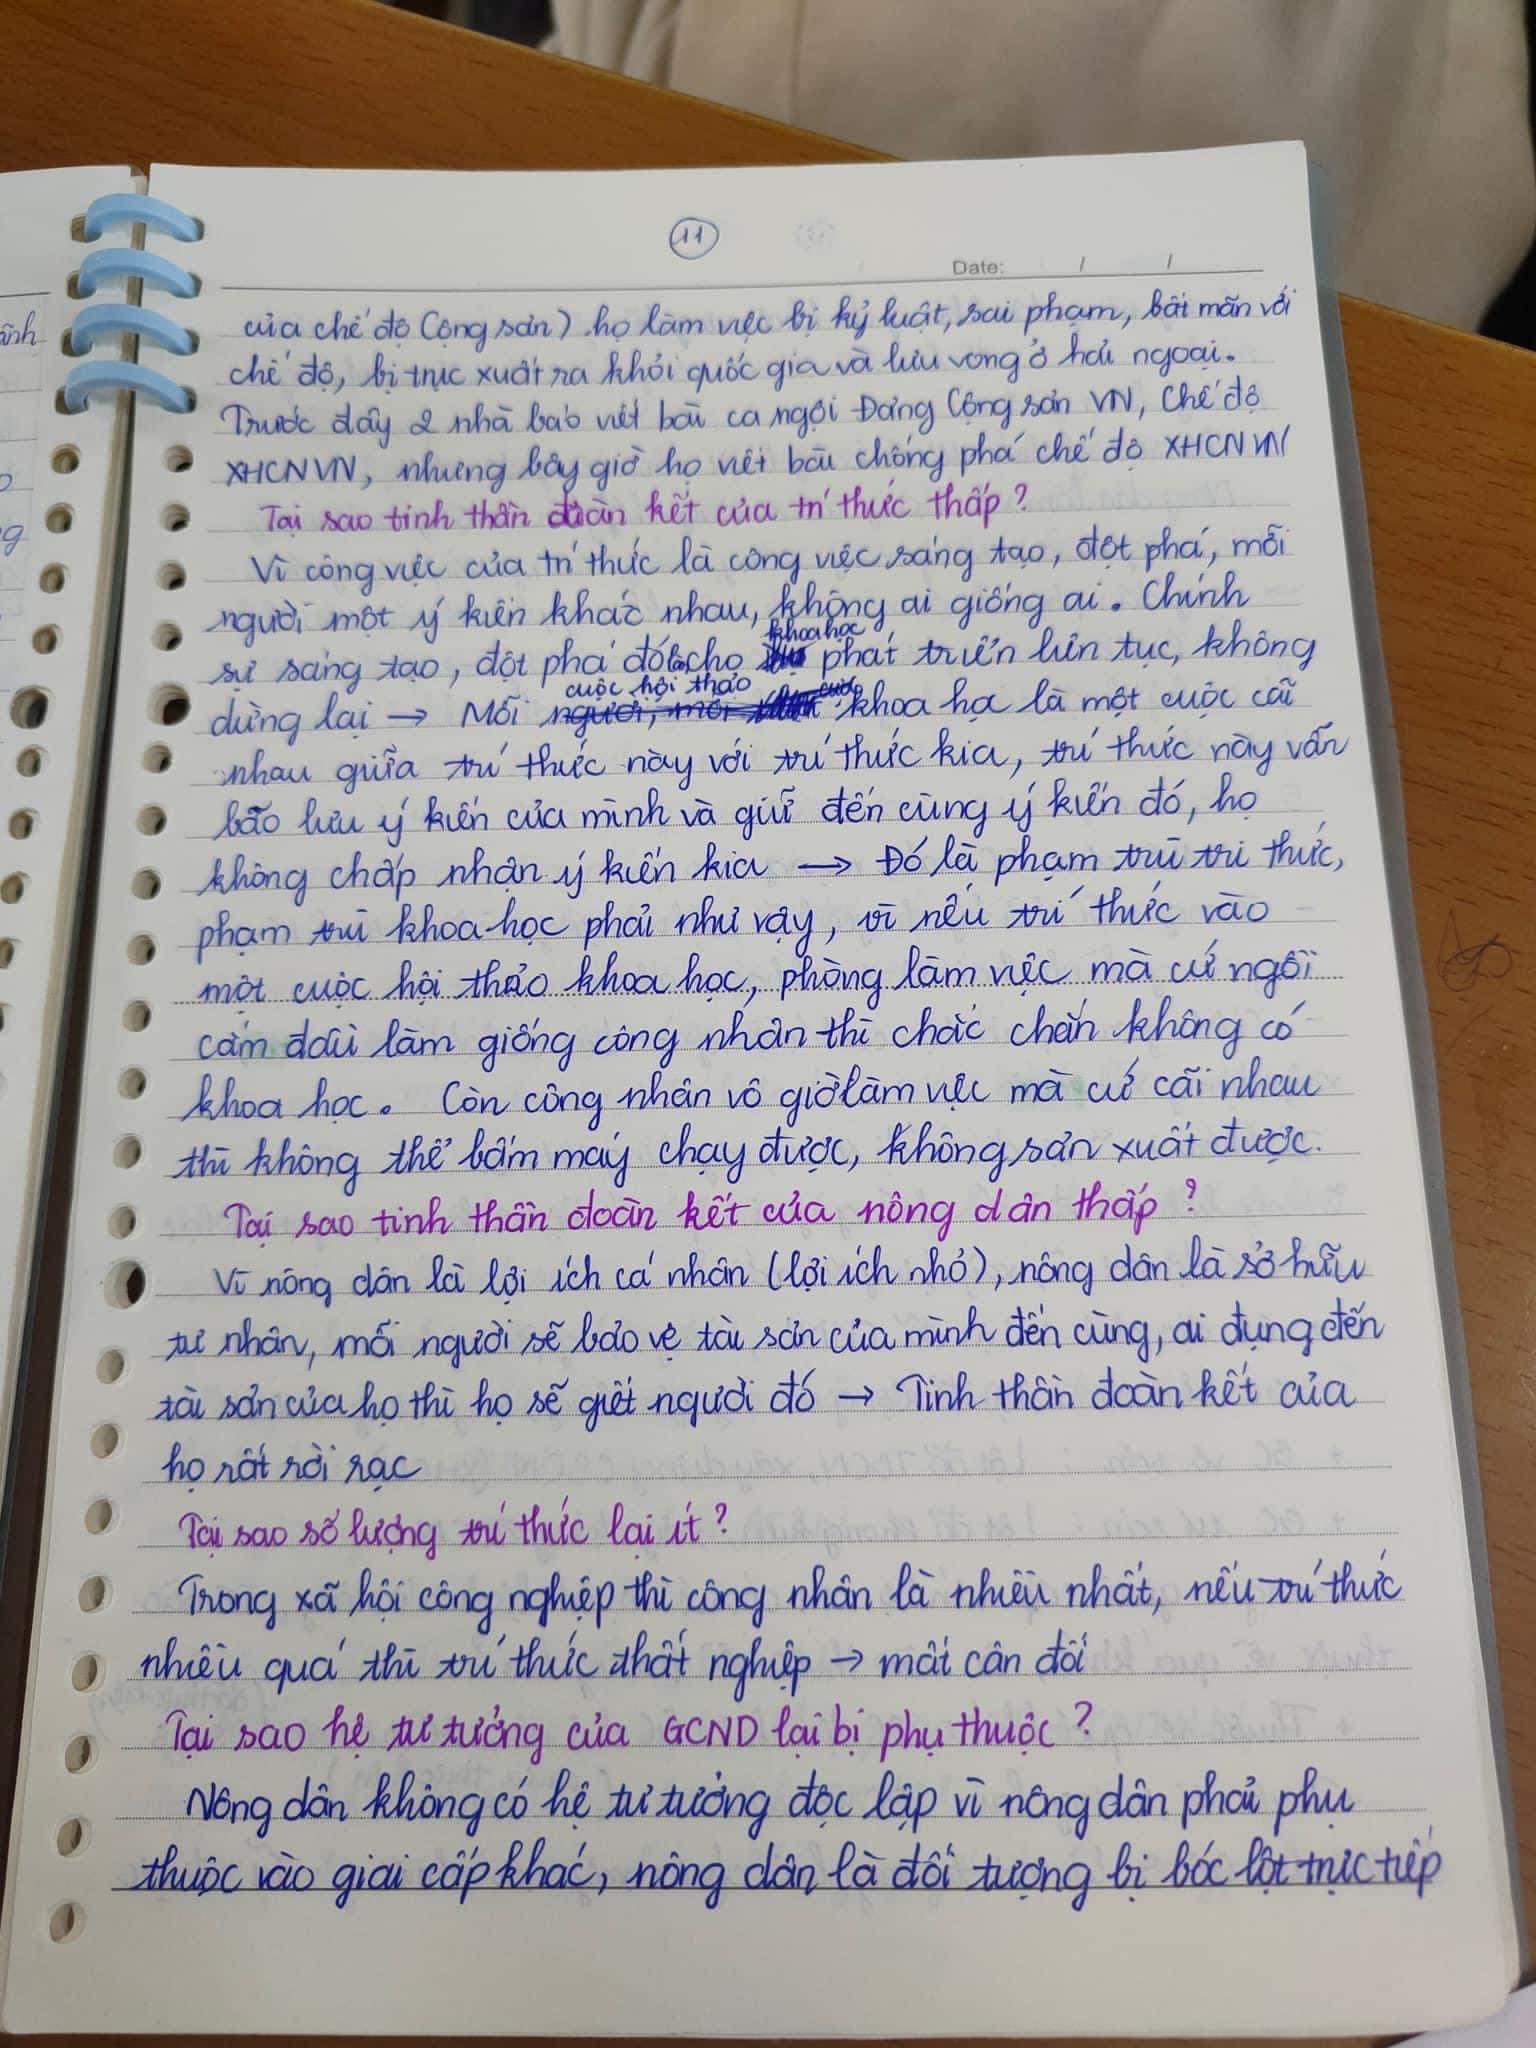 11
Date: / /
của chế độ Cộng sản) họ làm việc bị kỷ luật, sai phạm, bất mãn với
chế độ, bị trục xuất ra khỏi quốc gia và lưu vong ở hải ngoại.
Trước đây 2 nhà báo viết bài ca ngợi Đảng Cộng sản VN, chế độ
XHCNVN, nhưng bây giờ họ viết bài chống phá chế độ XHCN VN
Tại sao tinh thần đoàn kết của trí thức thấp?
Vì công việc của trí thức là công việc sáng tạo, đột phá, mỗi
người một ý kiến khác nhau, không ai giống ai. Chính
khoa học
sự sáng tạo, đột phá đó cho phát triển liên tục, không
cuộc hội thảo
dừng lại → Mỗi người, mỗi khoa học là một cuộc cãi
nhau giữa trí thức này với trí thức kia, trí thức này vẫn
bảo lưu ý kiến của mình và giữ đến cùng ý kiến đó, họ
không chấp nhận ý kiến kia → Đó là phạm trù tri thức,
phạm trù khoa học phải như vậy, vì nếu trí thức vào
một cuộc hội thảo khoa học, phòng làm việc mà cứ ngồi
cắm đầu làm giống công nhân thì chắc chắn không có
khoa học. Còn công nhân vô giờ làm việc mà cứ cãi nhau
thì không thể bấm máy chạy được, không sản xuất được.
Tại sao tinh thần đoàn kết của nông dân thấp?
Vì nông dân là lợi ích cá nhân (lợi ích nhỏ), nông dân là sở hữu
tư nhân, mỗi người sẽ bảo vệ tài sản của mình đến cùng, ai đụng đến
tài sản của họ thì họ sẽ giết người đó → Tinh thần đoàn kết của
họ rất rời rạc
Tại sao số lượng trí thức lại ít?
Trong xã hội công nghiệp thì công nhân là nhiều nhất, nếu trí thức
nhiều quá thì trí thức thất nghiệp → mất cân đối
Tại sao hệ tư tưởng của GCND lại bị phụ thuộc?
Nông dân không có hệ tư tưởng độc lập vì nông dân phải phụ
thuộc vào giai cấp khác, nông dân là đối tượng bị bóc lột trực tiếp